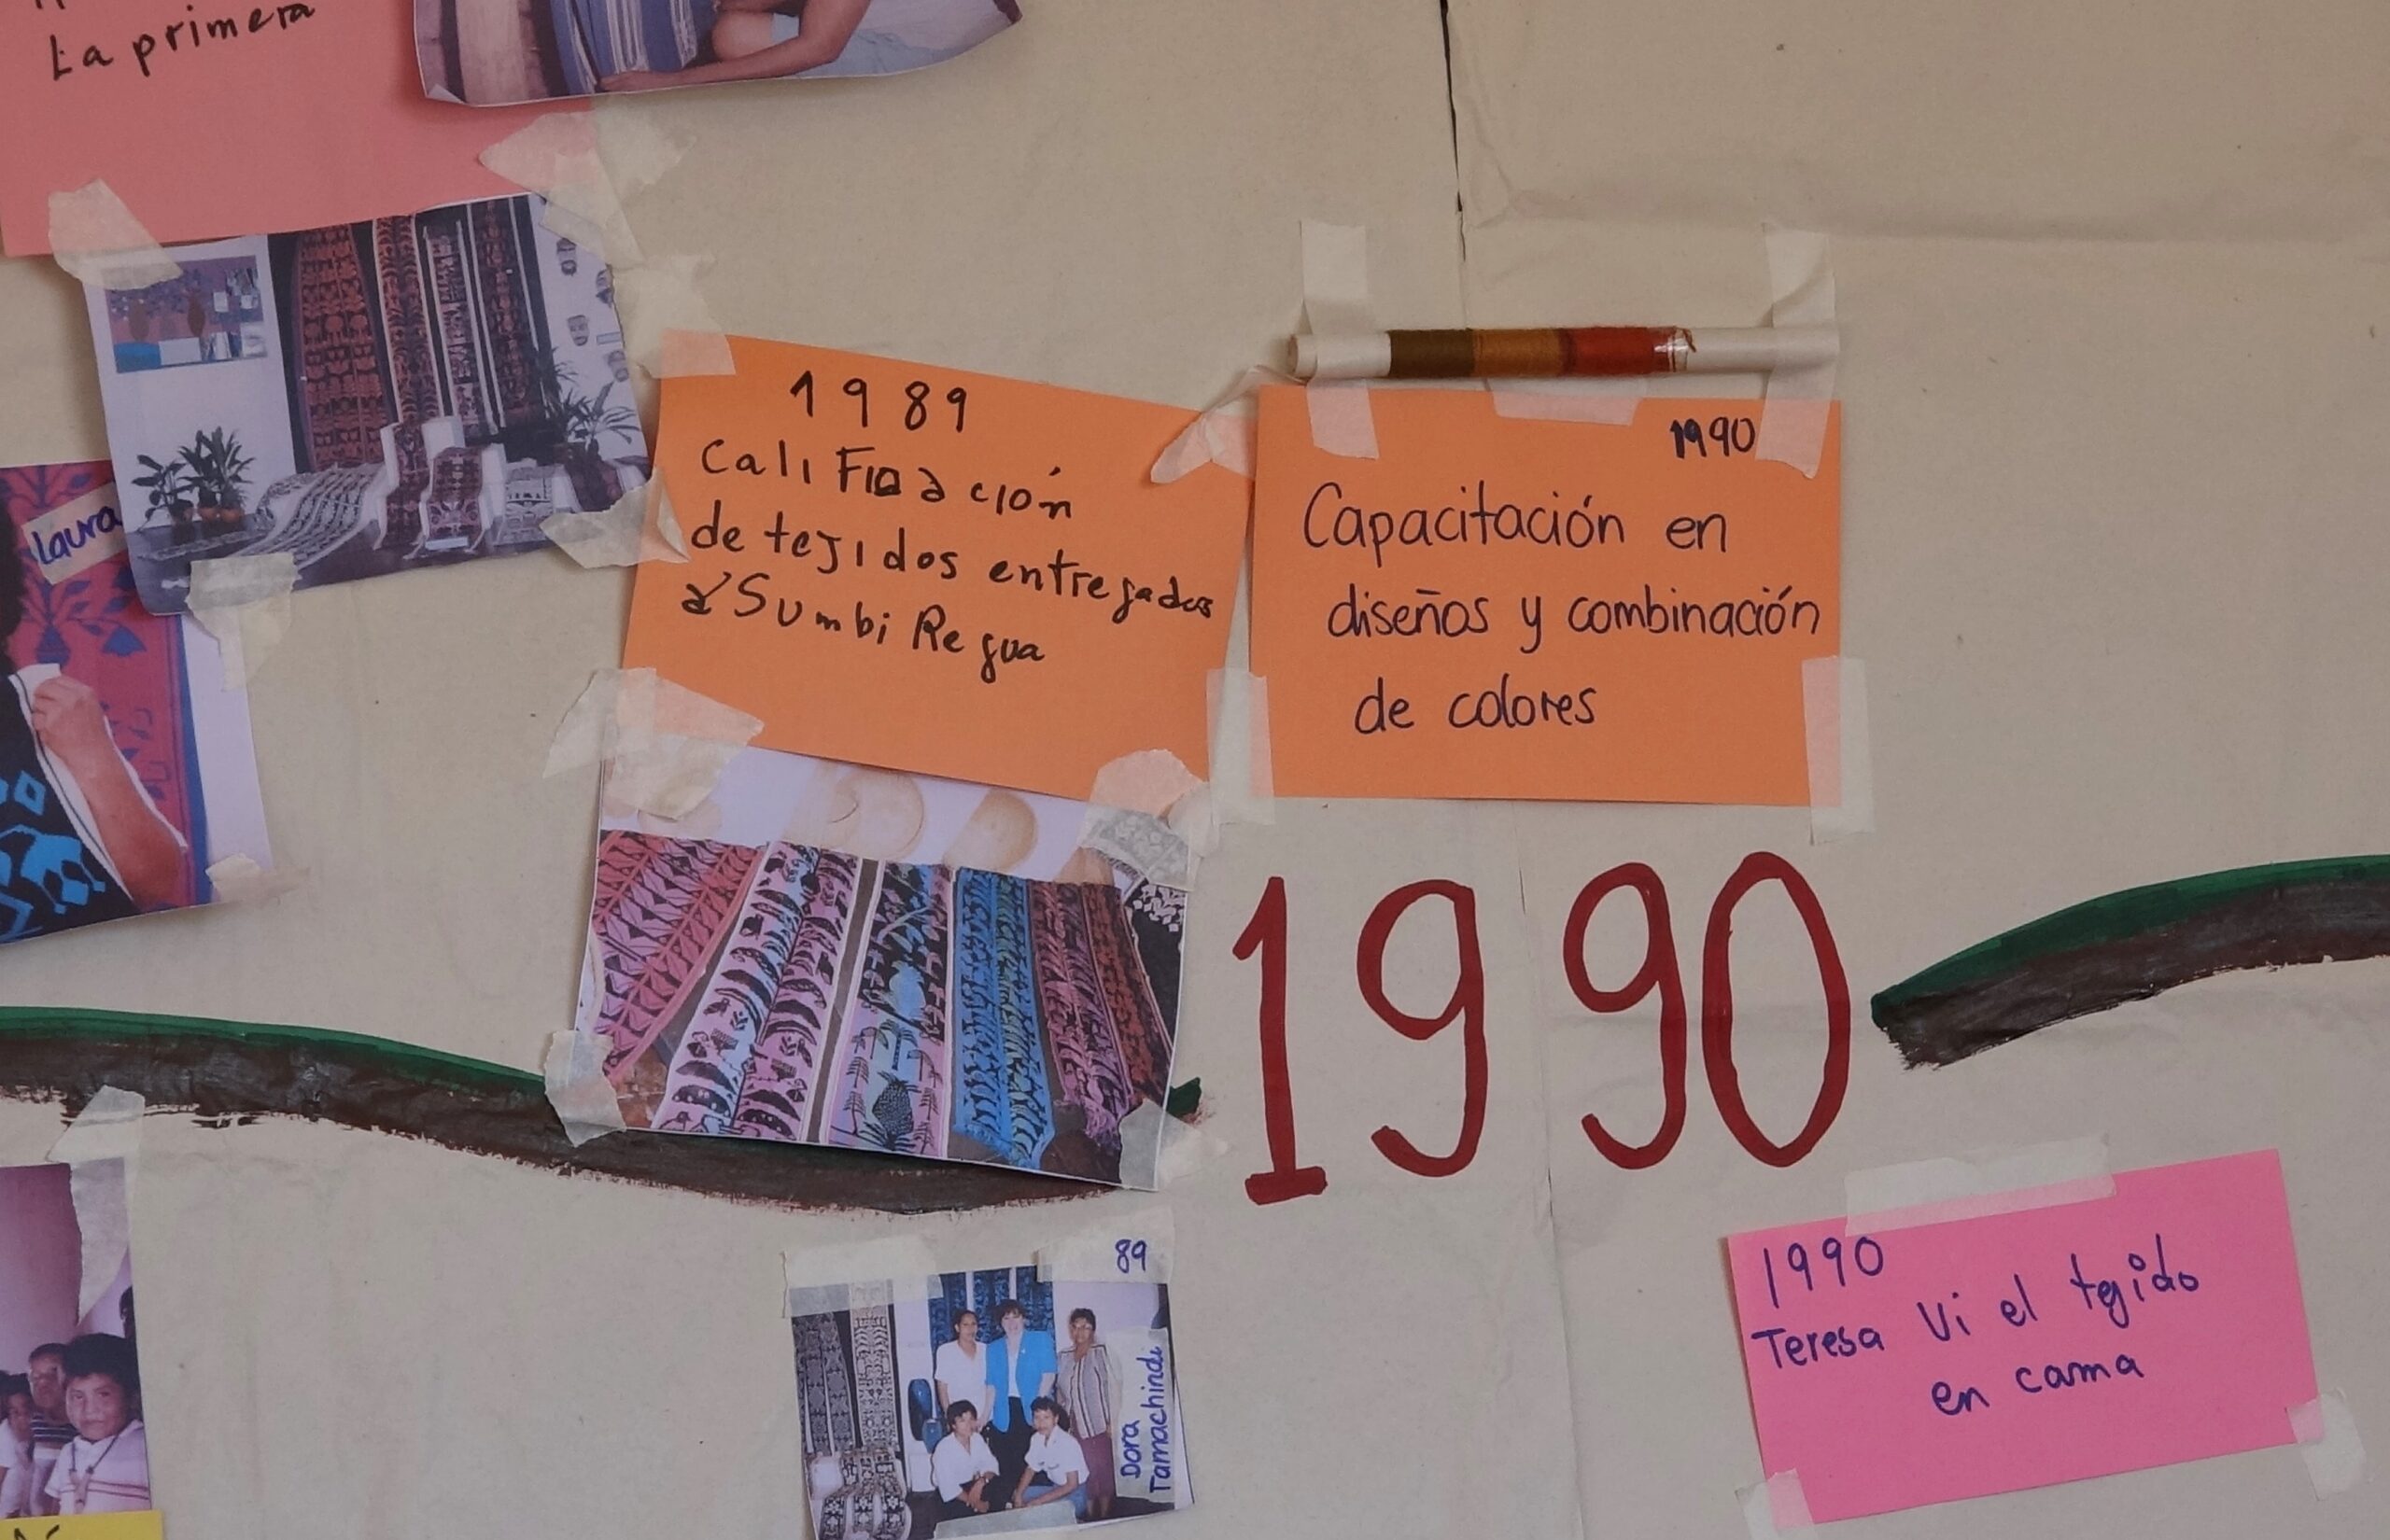 La primera
Laura
1989
Califiaación
de tejidos entregados
a Sumbi Regua
1990
Capacitación en
diseños y combinación
de colores
1990
89
Dora
Tamachindi
1990
Teresa Vi el tejido
en cama